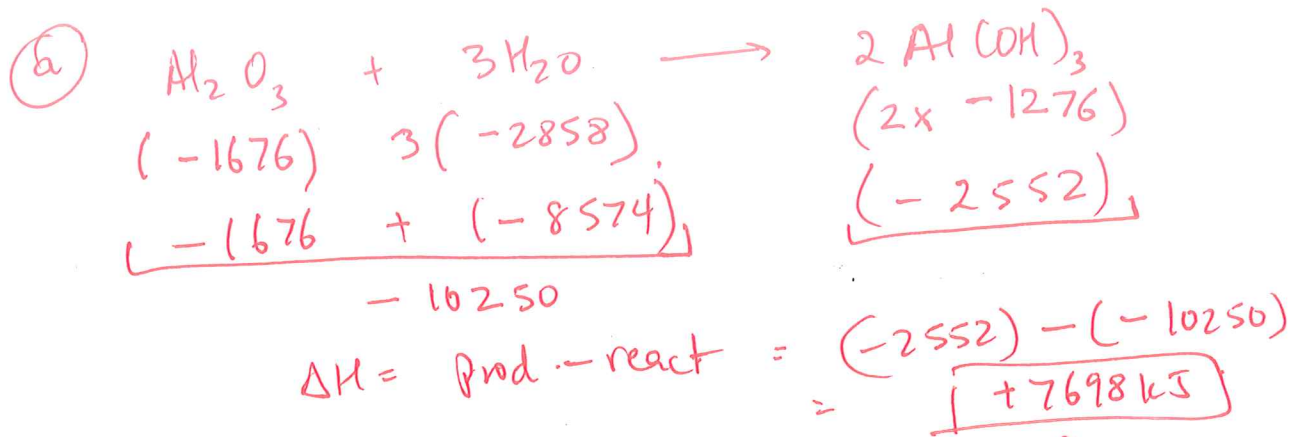 a Al₂O₃ + 3H₂O ⟶ 2Al(OH)₃
(-1676) 3(-2858). (2x -1276)
-1676 + (-8574) (-2552)
-10250
ΔH = Prod.-react = (-2552)-(-10250)
= +7698kJ